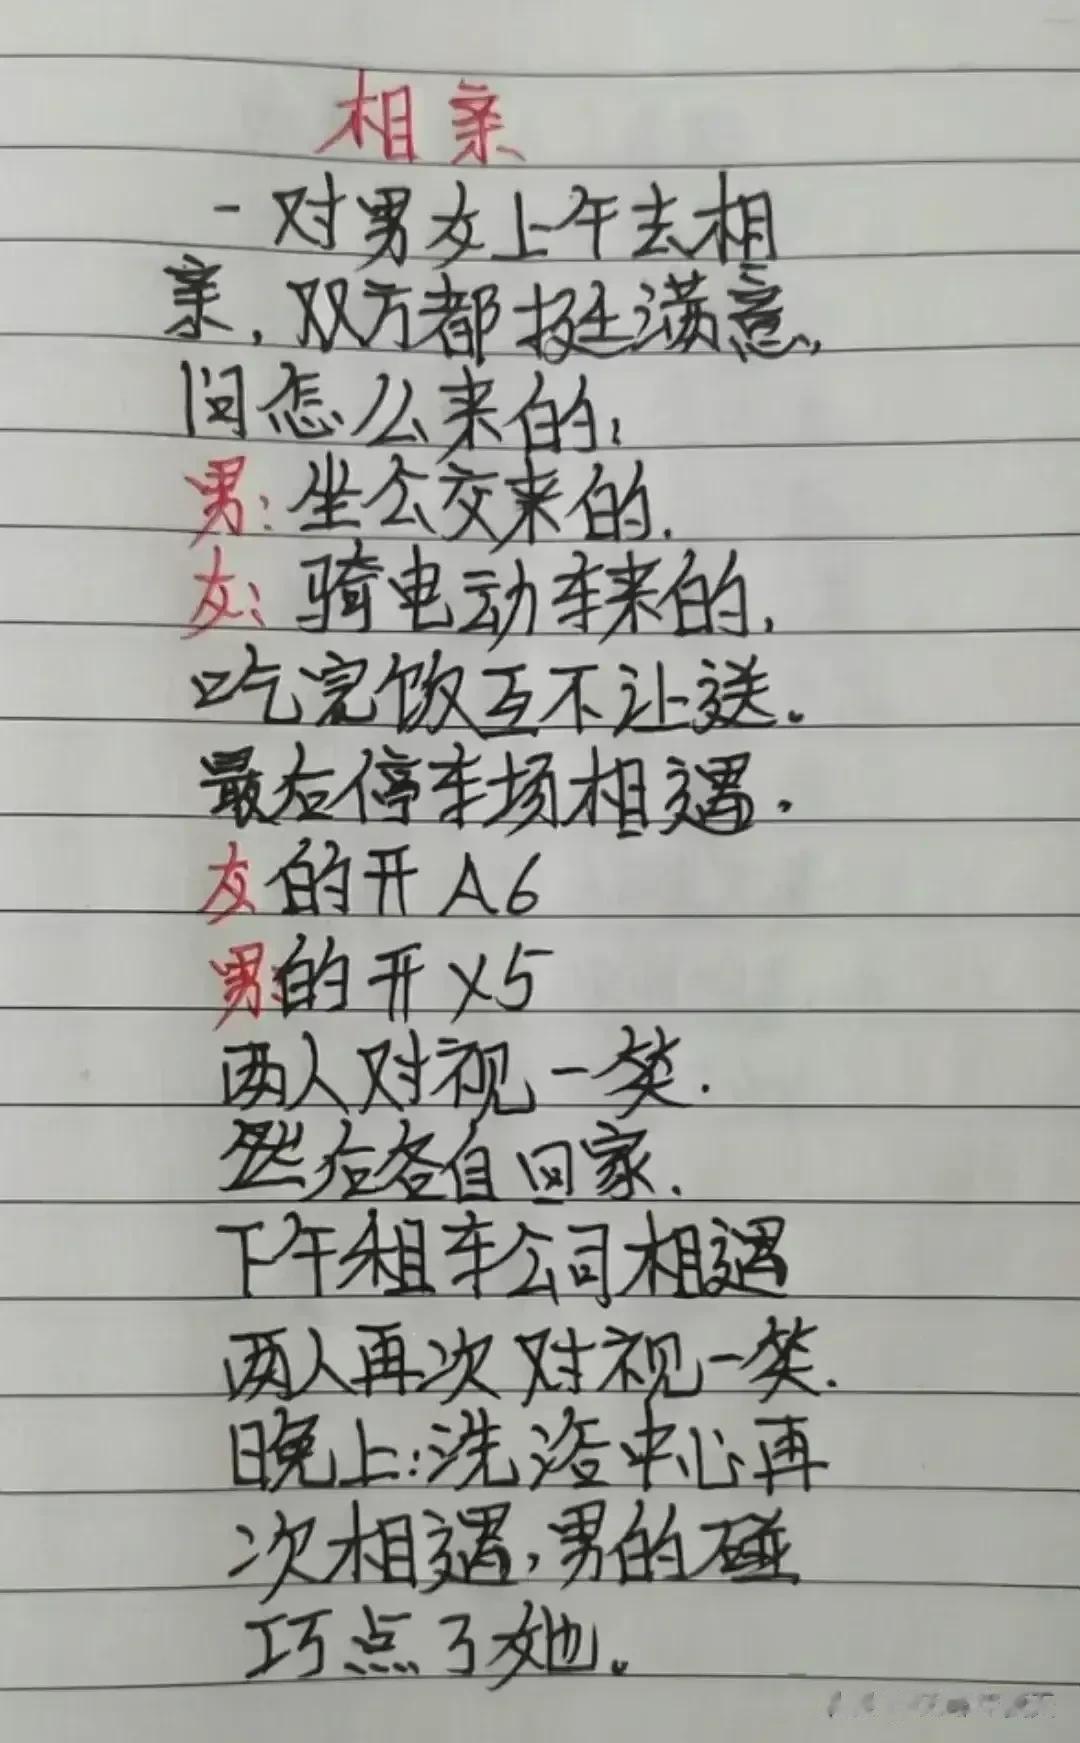 相亲
一对男女上午去相
亲,双方都挺满意,
问怎么来的,
男:坐公交来的.
女:骑电动车来的,
吃完饭互不让送.
最后停车场相遇.
女的开A6
男的开X5
两人对视一笑.
然后各自回家.
下午租车公司相遇
两人再次对视一笑.
晚上:洗浴中心再
次相遇,男的碰
巧点了她。